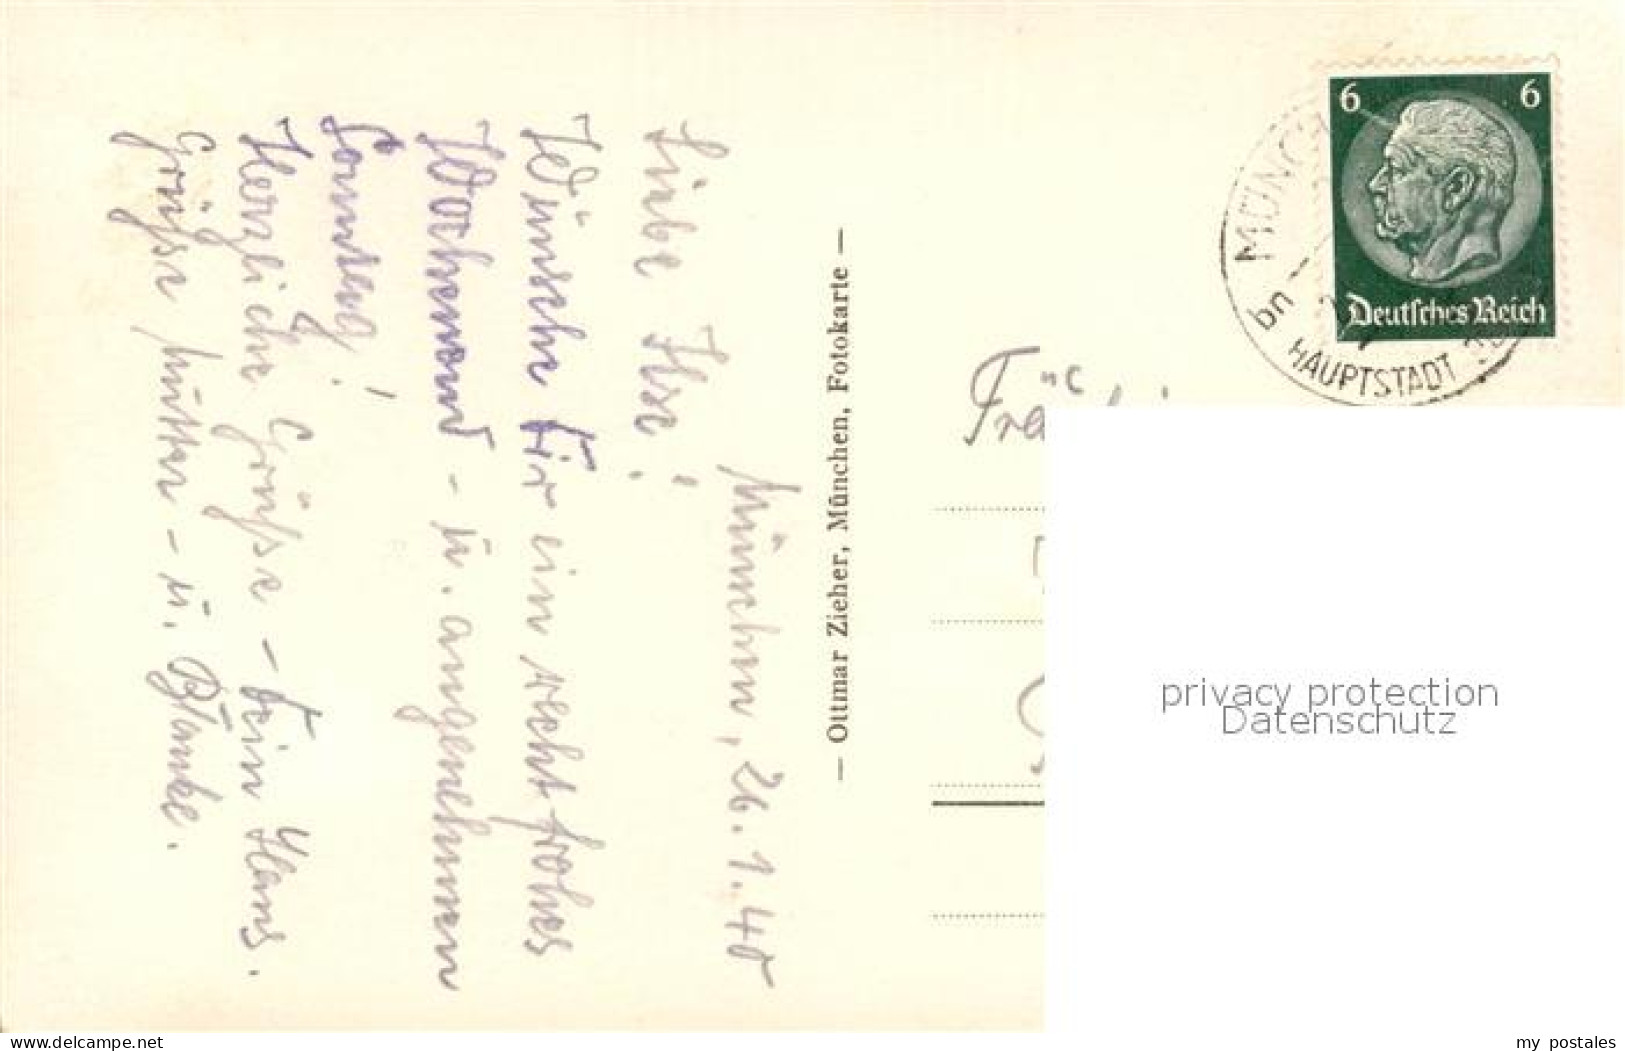 München, 26.1.40
Liebe Ilse!
Wünsche Dir ein recht frohes
Wochenend - u. angenehmen
Sonntag!
Herzliche Grüsse - Dein Hans.
Grüsse Mutter - u. Blanke.
— Ottmar Zieher, München, Fotokarte —
6 6
Deutsches Reich
bn
HAUPTSTADT
privacy protection
Datenschutz
my-paper.de
my postales